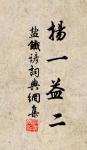 揚一益二
鹽鐵諺詞與綱集